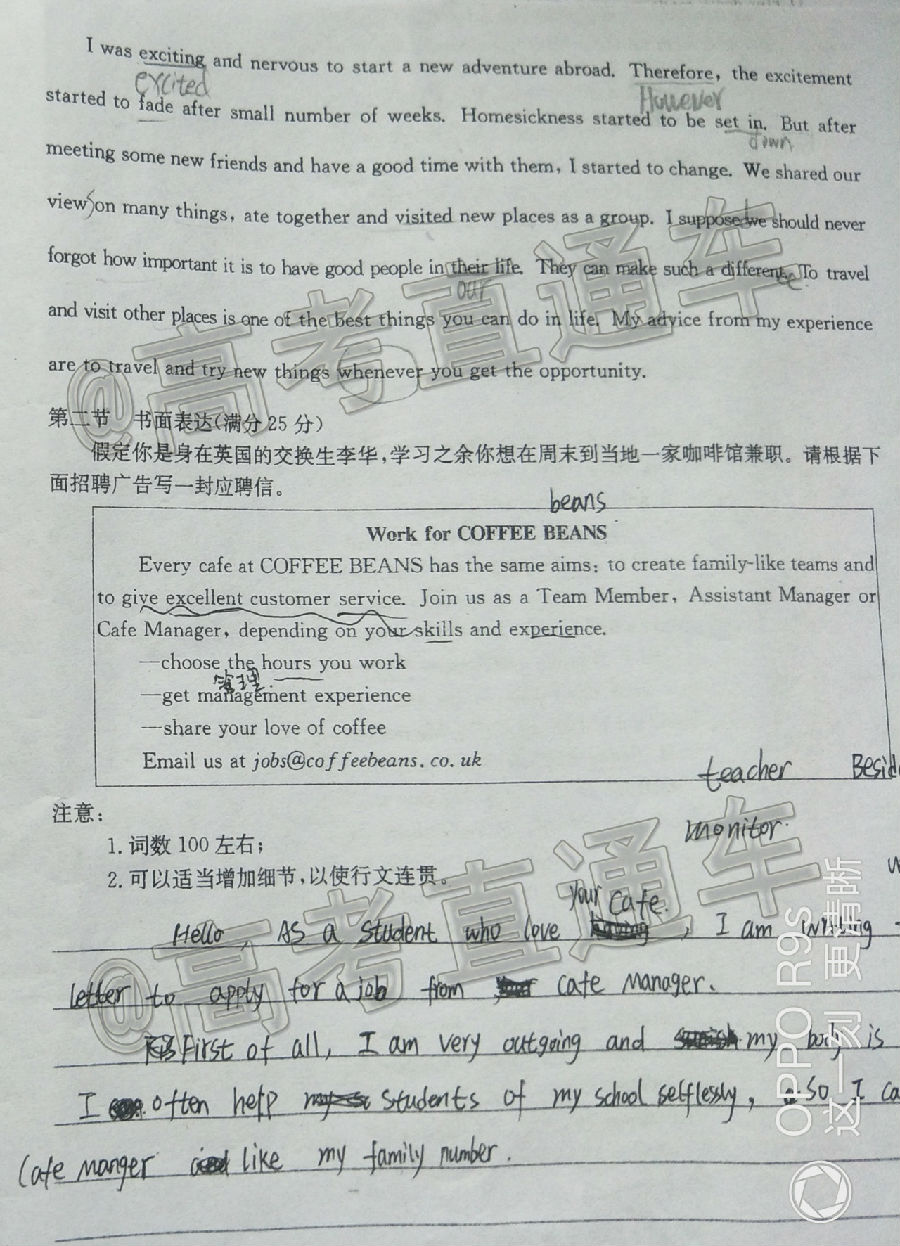 I was exciting and nervous to start a new adventure abroad. Therefore, the excitement
excited
However
started to fade after small number of weeks. Homesickness started to be set in. But after
down
meeting some new friends and have a good time with them, I started to change. We shared our
view on many things, ate together and visited new places as a group. I suppose we should never
forgot how important it is to have good people in their life. They can make such a different. To travel
our
ce
and visit other places is one of the best things you can do in life. My advice from my experience
are to travel and try new things whenever you get the opportunity.
@高考直通车
第二节 书面表达(满分25分)
假定你是身在英国的交换生李华,学习之余你想在周末到当地一家咖啡馆兼职。请根据下
面招聘广告写一封应聘信。
beans
Work for COFFEE BEANS
Every cafe at COFFEE BEANS has the same aims: to create family-like teams and
to give excellent customer service. Join us as a Team Member, Assistant Manager or
Cafe Manager, depending on your skills and experience.
—choose the hours you work
管理
—get management experience
—share your love of coffee
Email us at jobs@coffeebeans.co.uk
teacher
Besid
monitor.
注意:
1.词数100左右;
2.可以适当增加细节,以使行文连贯。
@高考直通车
your cafe.
Hello, As a student who love , I am writing
letter to apply for a job from cafe manager.
First of all, I am very outgoing and my body is
I often help students of my school selflessly, So I ca
Cafe manger like my family number.
OPPO R9s
这一刻 更清晰